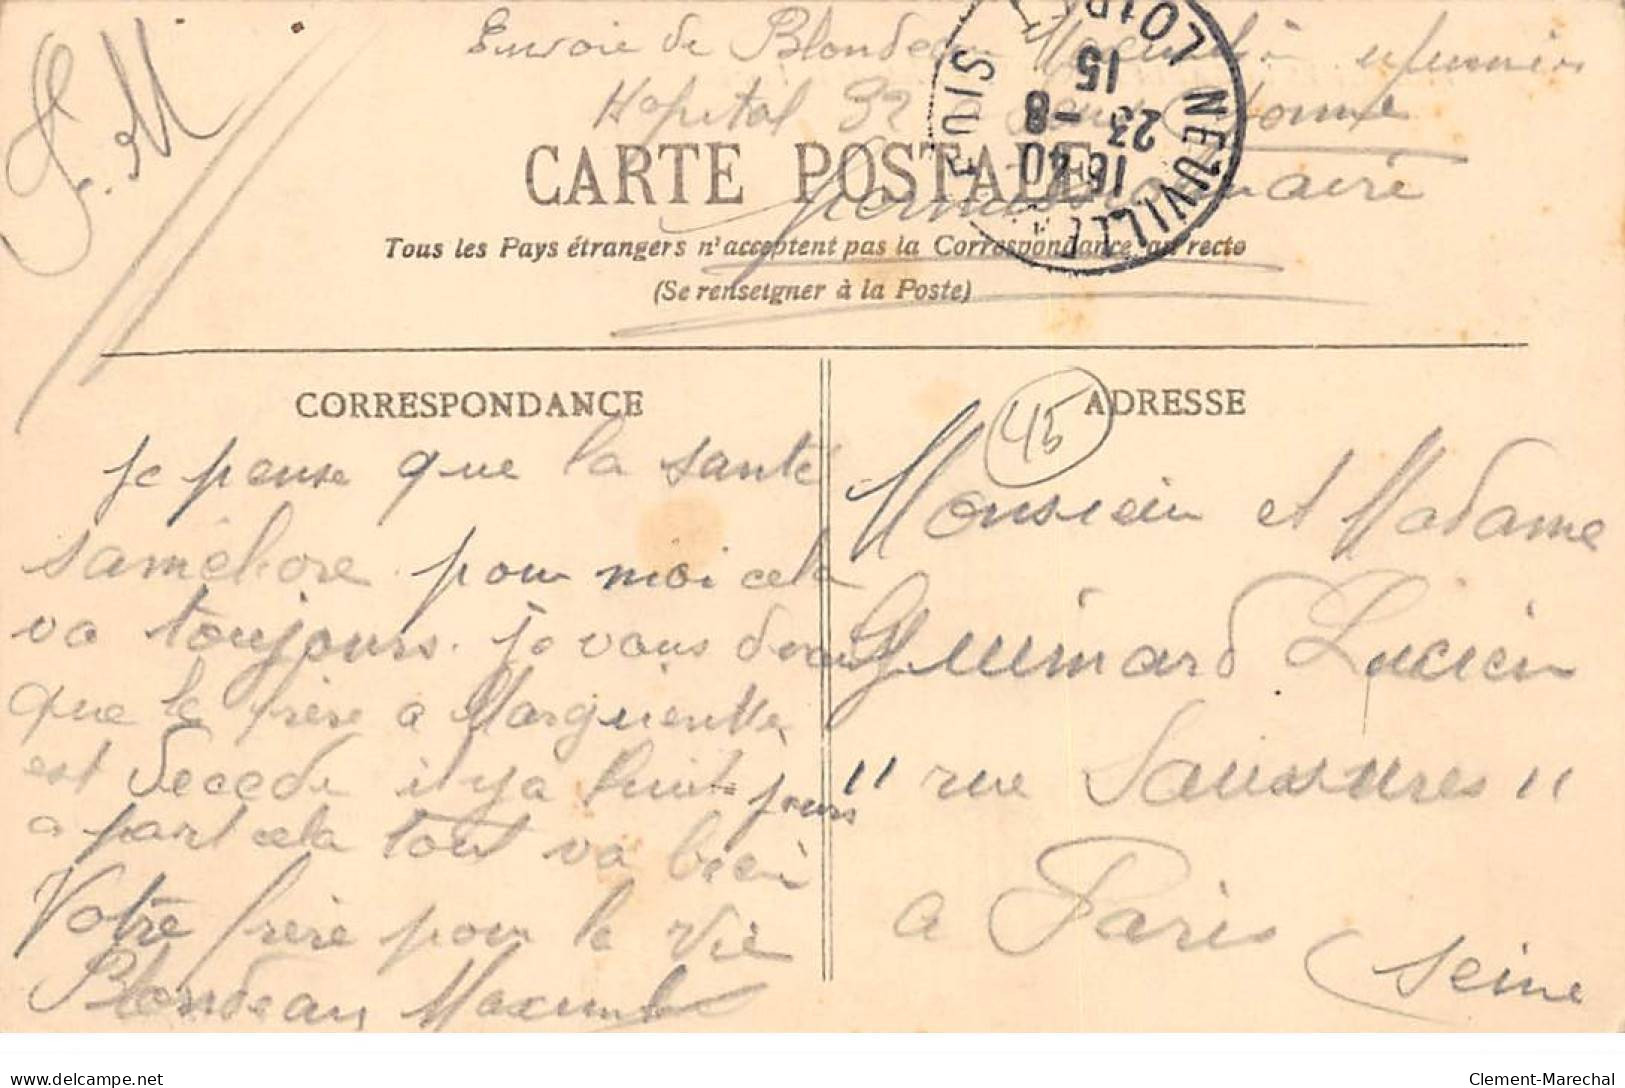 F. M
Envoie de Blondeau infirmier
Hopital 32
CARTE POSTALE
Tous les Pays étrangers n'acceptent pas la Correspondance au recto
(Se renseigner à la Poste)
NEUVILLE LOIRET
16 40
23 -8
15
CORRESPONDANCE
je pense que la santé
saméliore pour moi cela
va toujours. je vous dirai
que le frère a Marguerite
est décédé il y a huit jours
a part cela tout va bien
Votre frère pour la vie
Blondeau
45
ADRESSE
Monsieur et Madame
Guimard Lucien
11 rue Saussures 11
a Paris
(Seine
delcampe.net
Clement-Marechal